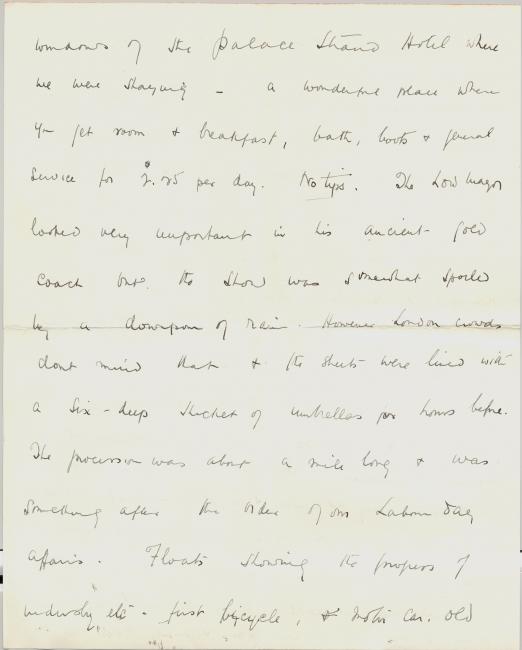 windows of the Palace Strand Hotel where
we were staying - a wonderful place where
you get room & breakfast, bath, boots & general
service for $2.25 per day. No tips. The Lord Mayor
looked very important in his ancient gold
coach but the show was somewhat spoiled
by a downpour of rain. However London crowds
dont mind that & the streets were lined with
a six-deep thicket of umbrellas for hours before.
The procession was about a mile long & was
something after the order of our Labour Day
affairs. Floats showing the progress of
industry etc - first bicycle, & motor car. old